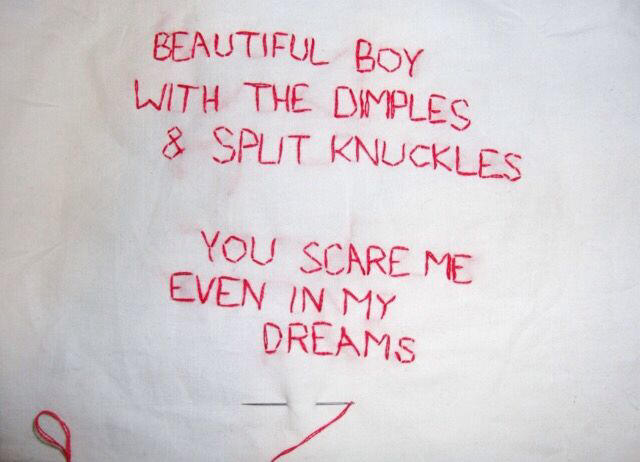 BEAUTIFUL BOY
WITH THE DIMPLES
& SPLIT KNUCKLES
YOU SCARE ME
EVEN IN MY
DREAMS